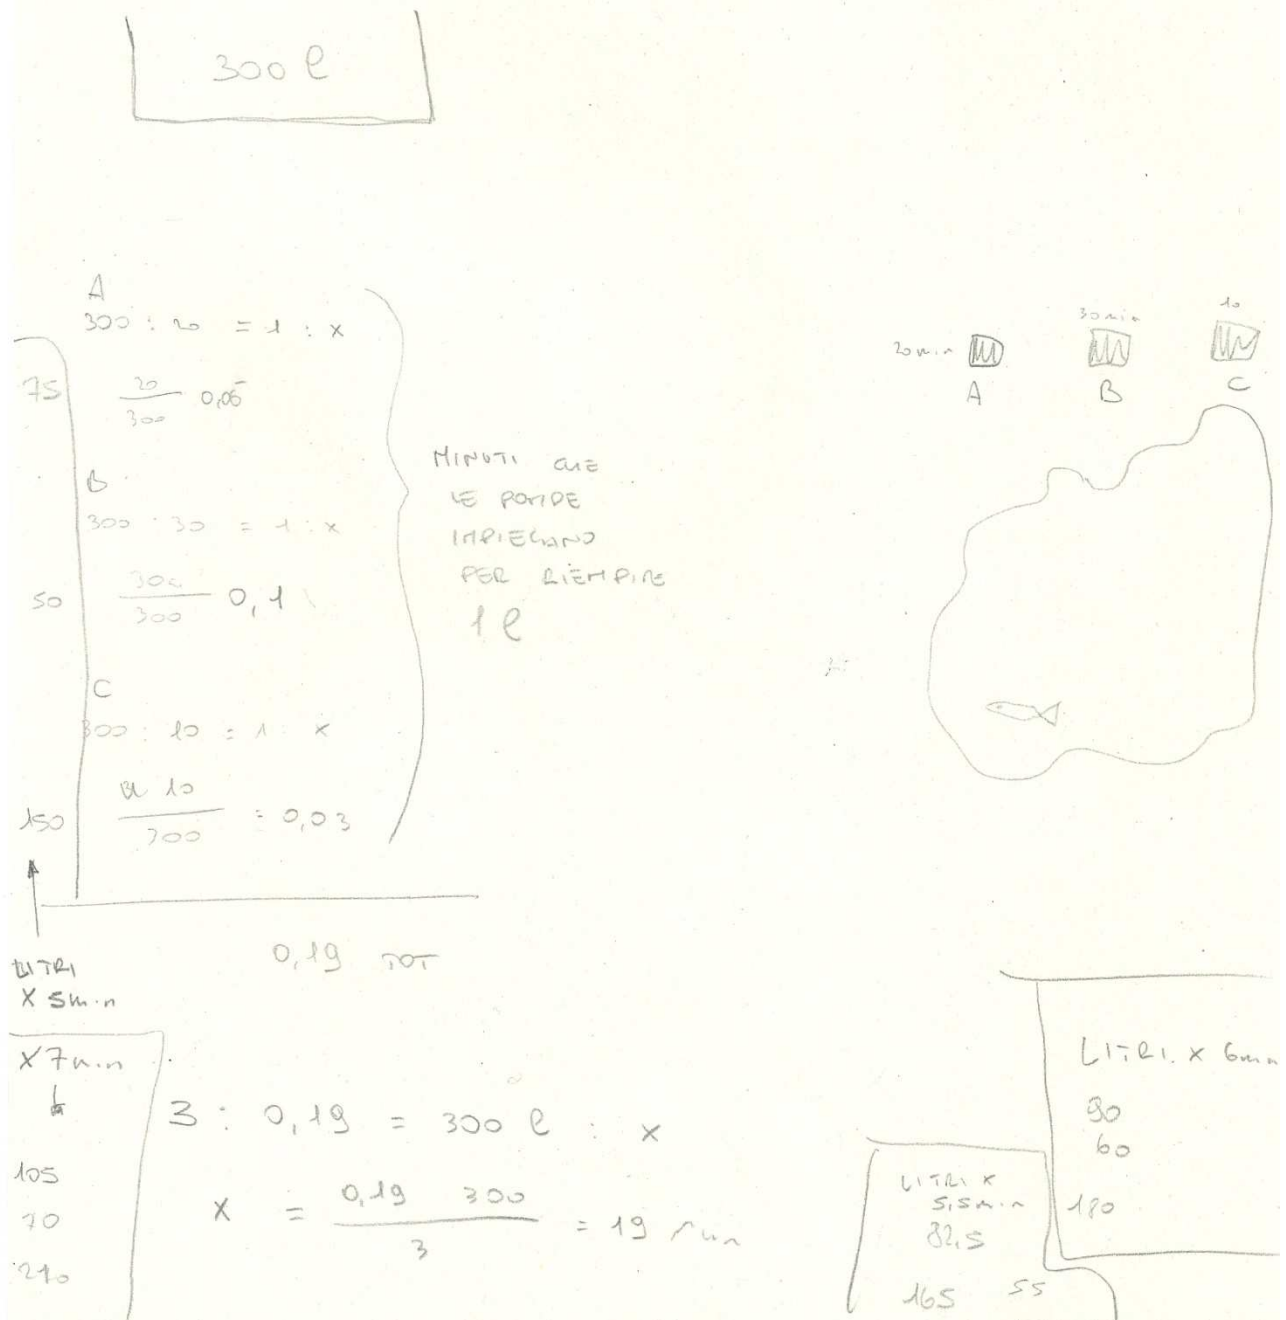 300 l
A
300 : 20 = 1 : x
75
20
300
0,06
B
300 : 30 = 1 : x
50
300
300
0,1
C
300 : 10 = 1 : x
150
10
300
= 0,03
MINUTI CHE
LE POMPE
IMPIEGANO
PER RIEMPIRE
1 l
20 min
30 min
10
A
B
C
LITRI
X 5 min
0,19 TOT
X 7 min
105
70
210
3 : 0,19 = 300 l : x
x = 0,19 300
3
= 19 min
LITRI X 6 min
90
60
180
LITRI X
5,5 min
82,5
165 55